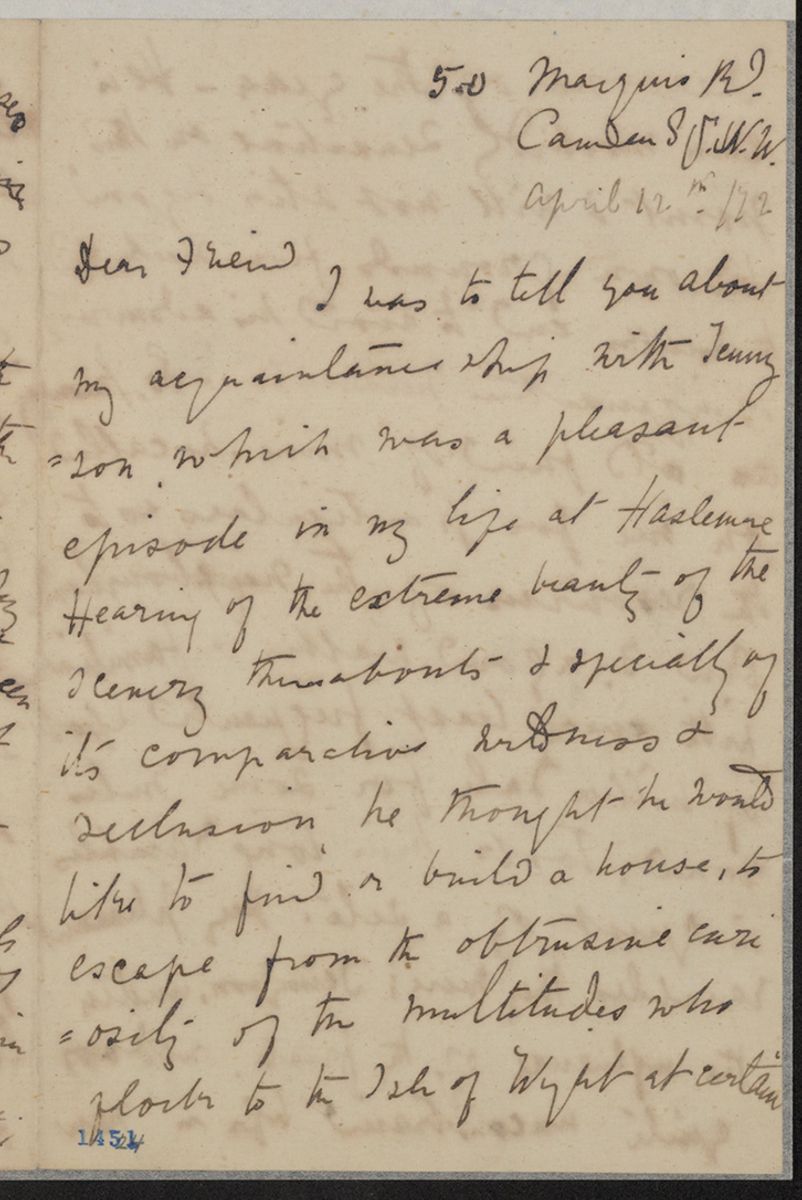 50 Marquis Rd.
Camden Sq. N.W.
April 12th. /72
Dear Friend
I was to tell you about
my acquaintanceship with Tenny
=son which was a pleasant
episode in my life at Haslemere
Hearing of the extreme beauty of the
scenery thereabouts & specially of
its comparative wildness &
seclusion, he thought he would
like to find or build a house, to
escape from the obtrusive curi
=osity of the multitudes who
flock to the Isle of Wight at certain
1451
24